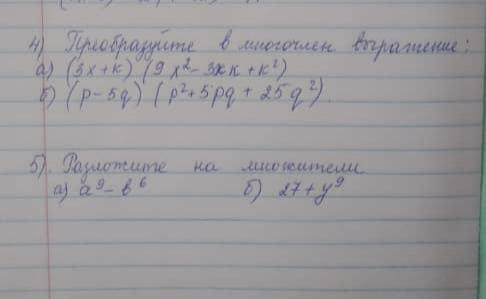 4) Преобразуйте в многочлен выражение:
а) (3x+к) (9x²-3xк+к²)
б) (p-5q) (p²+5pq+25q²).
5). Разложите на множители
а) a⁹-b⁶ б) 27+y⁹